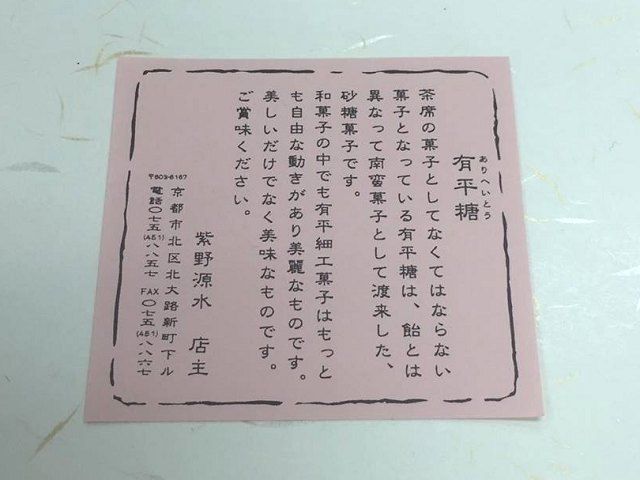 ありへいとう
有平糖
茶席の菓子としてなくてはならない
菓子となっている有平糖は、飴とは
異なって南蛮菓子として渡来した、
砂糖菓子です。
和菓子の中でも有平細工菓子はもっと
も自由な動きがあり美麗なものです。
美しいだけでなく美味なものです。
ご賞味ください。
紫野源水 店主
京都市北区北大路新町下ル
〒603-8167
電話〇七五(451)八八五七 FAX〇七五(451)八八六七